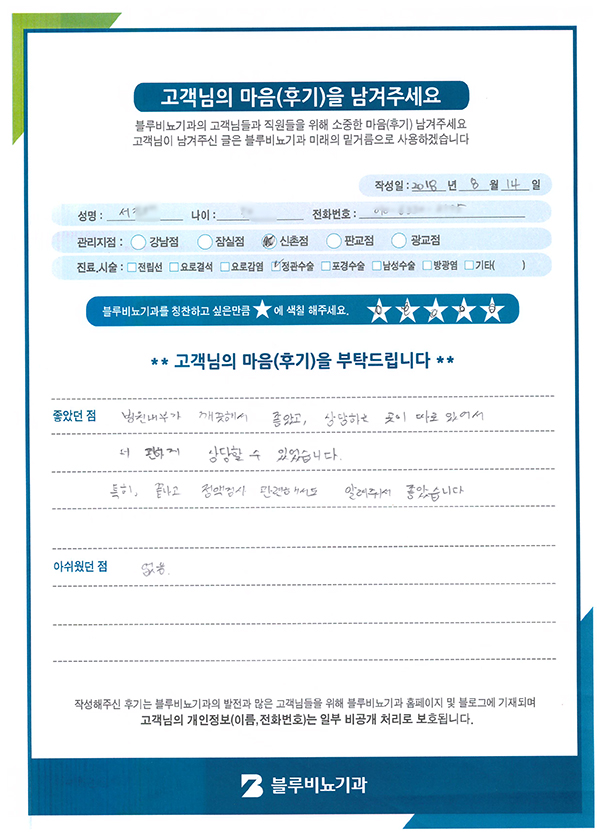 고객님의 마음(후기)을 남겨주세요
블루비뇨기과의 고객님들과 직원들을 위해 소중한 마음(후기) 남겨주세요
고객님이 남겨주신 글은 블루비뇨기과 미래의 밑거름으로 사용하겠습니다
작성일 : 2018 년 8 월 14 일
성명 : 서 나이 : 전화번호 :
관리지점 : 강남점 잠실점 신촌점 판교점 광교점
진료,시술 : 전립선 요로결석 요로감염 정관수술 포경수술 남성수술 방광염 기타( )
블루비뇨기과를 칭찬하고 싶은만큼 ★에 색칠 해주세요.
** 고객님의 마음(후기)을 부탁드립니다 **
좋았던 점 병원내부가 깨끗해서 좋았고, 상담하는 곳이 따로 있어서
더 편하게 상담할 수 있었습니다.
특히, 끝나고 정액검사 관련해서도 알려줘서 좋았습니다
아쉬웠던 점 없음.
작성해주신 후기는 블루비뇨기과의 발전과 많은 고객님들을 위해 블루비뇨기과 홈페이지 및 블로그에 기재되며
고객님의 개인정보(이름,전화번호)는 일부 비공개 처리로 보호됩니다.
블루비뇨기과